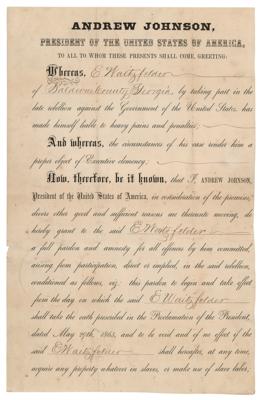 ANDREW JOHNSON,
PRESIDENT OF THE UNITED STATES OF AMERICA,
TO ALL TO WHOM THESE PRESENTS SHALL COME, GREETING:
Whereas, E Waitzfelder
of Baldwin County, Georgia, by taking part in the
late rebellion against the Government of the United States, has
made himself liable to heavy pains and penalties;
And whereas, the circumstances of his case render him a
proper object of Executive clemency;
Now, therefore, be it known, that I, ANDREW JOHNSON,
President of the United States of America, in consideration of the premises,
divers other good and sufficient reasons me thereunto moving, do
hereby grant to the said E. Waitzfelder
a full pardon and amnesty for all offences by him committed,
arising from participation, direct or implied, in the said rebellion,
conditioned as follows, viz: this pardon to begin and take effect
from the day on which the said E Waitzfelder
shall take the oath prescribed in the Proclamation of the President,
dated May 29th, 1865, and to be void and of no effect if the
said E Waitzfelder shall hereafter, at any time,
acquire any property whatever in slaves, or make use of slave labor,